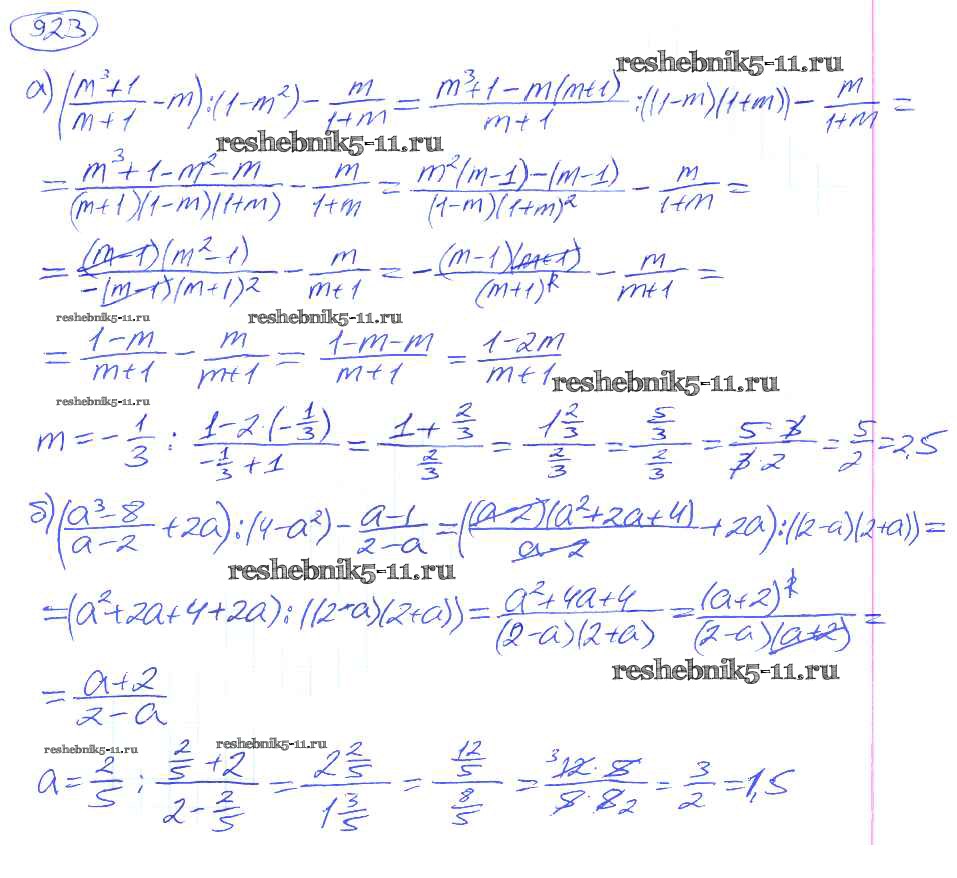 923
reshebnik5-11.ru
а) ((m³+1)/(m+1) - m) : (1-m²) - m/(1+m) = (m³+1-m(m+1))/(m+1) : ((1-m)(1+m)) - m/(1+m) =
reshebnik5-11.ru
= (m³+1-m²-m)/((m+1)(1-m)(1+m)) - m/(1+m) = (m²(m-1)-(m-1))/((1-m)(1+m)²) - m/(1+m) =
= ((m-1)(m²-1))/(-(m-1)(m+1)²) - m/(m+1) = -((m-1)(m+1))/(m+1)² - m/(m+1) =
reshebnik5-11.ru reshebnik5-11.ru
= (1-m)/(m+1) - m/(m+1) = (1-m-m)/(m+1) = (1-2m)/(m+1)
reshebnik5-11.ru
reshebnik5-11.ru
m = -1/3 ; (1-2·(-1/3))/(-1/3+1) = (1+2/3)/(2/3) = (1 2/3)/(2/3) = (5/3)/(2/3) = (5·3)/(3·2) = 5/2 = 2,5
б) ((a³-8)/(a-2) + 2a) : (4-a²) - (a-1)/(2-a) = (((a-2)(a²+2a+4))/(a-2) + 2a) : ((2-a)(2+a)) =
reshebnik5-11.ru
= (a²+2a+4+2a) : ((2-a)(2+a)) = (a²+4a+4)/((2-a)(2+a)) = (a+2)²/((2-a)(a+2)) =
reshebnik5-11.ru
= (a+2)/(2-a)
reshebnik5-11.ru reshebnik5-11.ru
a = 2/5 ; (2/5+2)/(2-2/5) = (2 2/5)/(1 3/5) = (12/5)/(8/5) = (³12·5)/(5·8₂) = 3/2 = 1,5